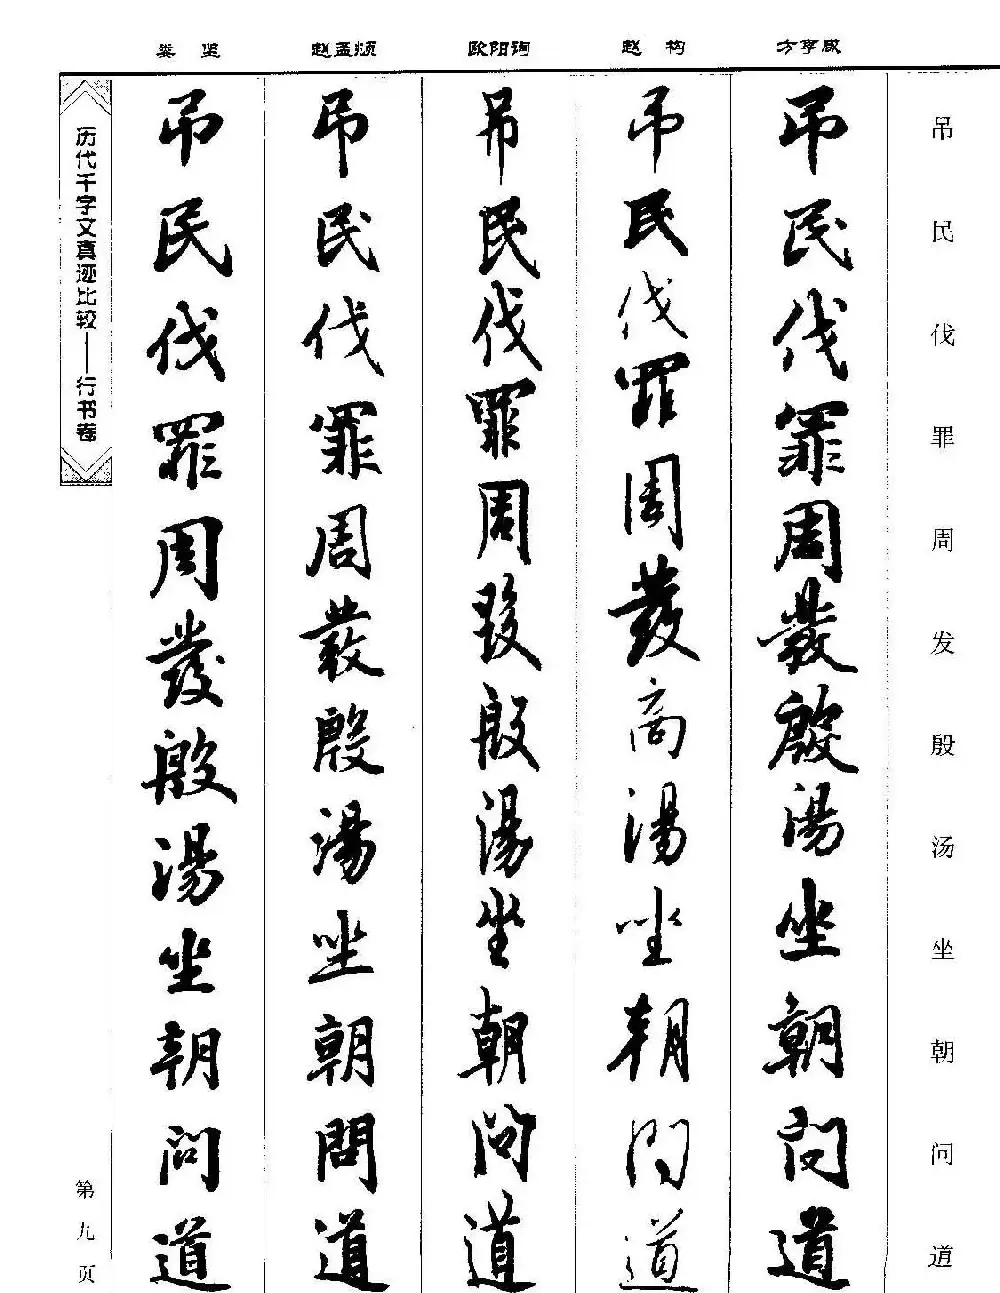 吊民伐罪周发殷汤坐朝问道
方亨咸
吊民伐罪周發殷湯坐朝問道
赵构
吊民伐罪周發商湯坐朝問道
欧阳询
吊民伐罪周發殷湯坐朝問道
赵孟𫖯
吊民伐罪周發殷湯坐朝問道
娄坚
吊民伐罪周發殷湯坐朝問道
历代千字文真迹比较——行书卷
第九页